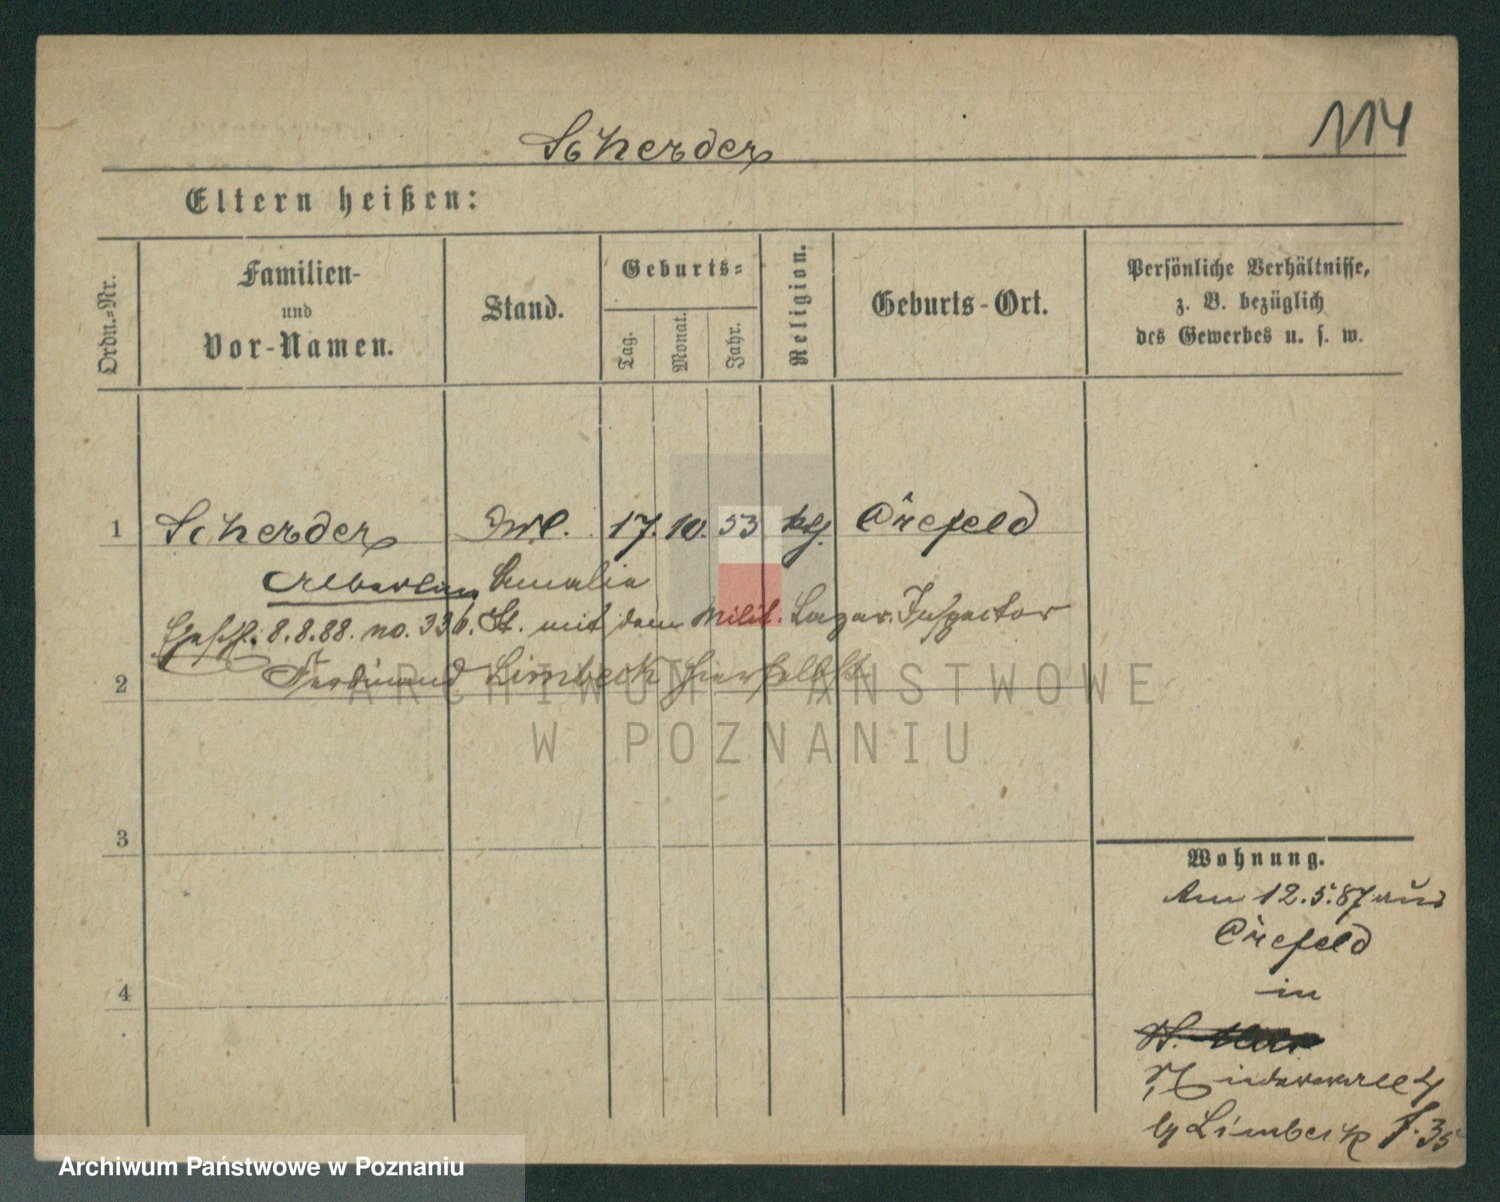 Scherder
114
Eltern heißen:
Ordn.-Nr.
Familien-
und
Vor-Namen.
Stand.
Geburts-
Tag.
Monat.
Jahr.
Religion.
Geburts-Ort.
Persönliche Verhältnisse,
z. B. bezüglich
des Gewerbes u. s. w.
1 Scherder 17. 10. 53 Crefeld
Amalie
8.8.88. no. 336. St. mit dem Milit. Lazar. Inspector
2 Ferdinand Limbeck hierselbst
ARCHIWUM PAŃSTWOWE
W POZNANIU
3
4
Wohnung.
Am 12.5.87 aus
Crefeld
in
Niederwall 4
Limbeck f. 35
Archiwum Państwowe w Poznaniu